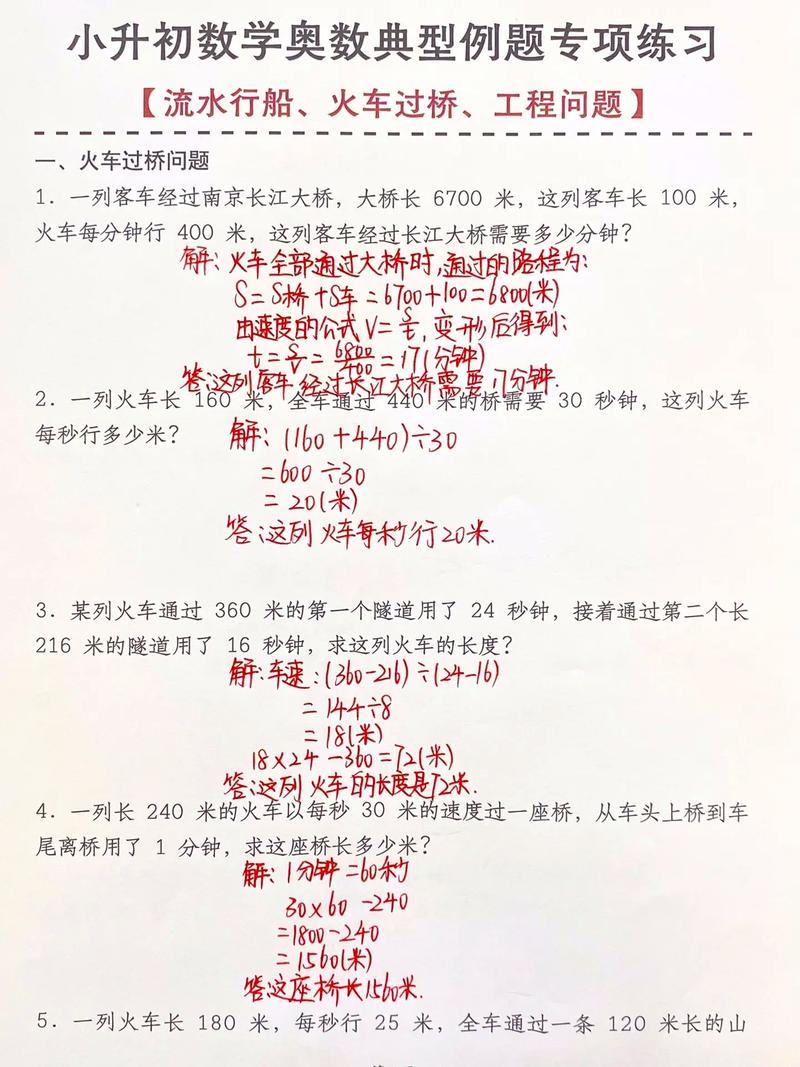 小升初数学奥数典型例题专项练习
【流水行船、火车过桥、工程问题】
一、火车过桥问题
1. 一列客车经过南京长江大桥，大桥长 6700 米，这列客车长 100 米，
火车每分钟行 400 米，这列客车经过长江大桥需要多少分钟？
解：火车全部通过大桥时，通过的路程为：
S=S桥+S车=6700+100=6800(米)
由速度的公式 V=S/t，变形后得到：
t=S/V=6800/400=17(分钟)
答：这列客车经过长江大桥需要17分钟.
2. 一列火车长 160 米，全车通过 440 米的桥需要 30 秒钟，这列火车
每秒行多少米？
解：(160+440)÷30
=600÷30
=20(米)
答：这列火车每秒行20米.
3. 某列火车通过 360 米的第一个隧道用了 24 秒钟，接着通过第二个长
216 米的隧道用了 16 秒钟，求这列火车的长度？
解：车速：(360-216)÷(24-16)
=144÷8
=18(米)
18×24-360=72(米)
答：这列火车的长度是72米.
4. 一列长 240 米的火车以每秒 30 米的速度过一座桥，从车头上桥到车
尾离桥用了 1 分钟，求这座桥长多少米？
解：1分钟=60秒
30×60-240
=1800-240
=1560(米)
答：这座桥长1560米.
5. 一列火车长 180 米，每秒行 25 米，全车通过一条 120 米长的山